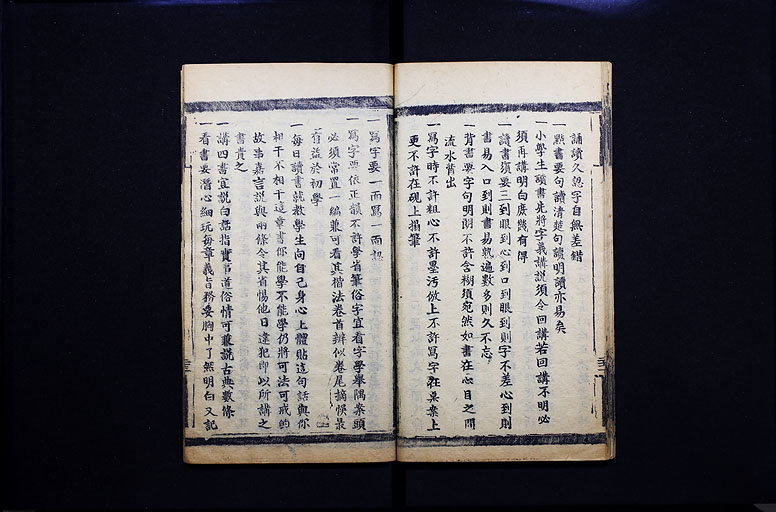 誦讀久忽字自無差錯
一點書要句讀清楚句讀明讀亦易矣
一小學生讀書先將字義講說須令回講若回講不明必
須再講明白庶幾有得
一讀書須要三到眼到心到口到眼到則字不差心到則
書易入口到則書易熟遍數多則久不忘
一背書要字句明朗不許含糊須宛然如書在心目之間
流水背出
一寫字時不許粗心不許墨汚倣上不許寫字在桌案上
更不許在硯上搦筆
一寫字要一面寫一面認
一寫字要依正韻不許學省筆俗字宜看字學舉隅案頭
必須常置一編兼可看其楷法卷首辨似卷尾摘悞最
有益於初學
一每日讀書就教學生向自己身心上體貼這句話與你
相干不相干這章書你能學不能學仍將可法可戒的
故事嘉言說與兩條令其省惕他日違犯即以所講之
書責之
一講四書宜說白話指實事道俗情可兼說古典數條
一看書要潛心細玩每章義旨務要胸中了然明白又記